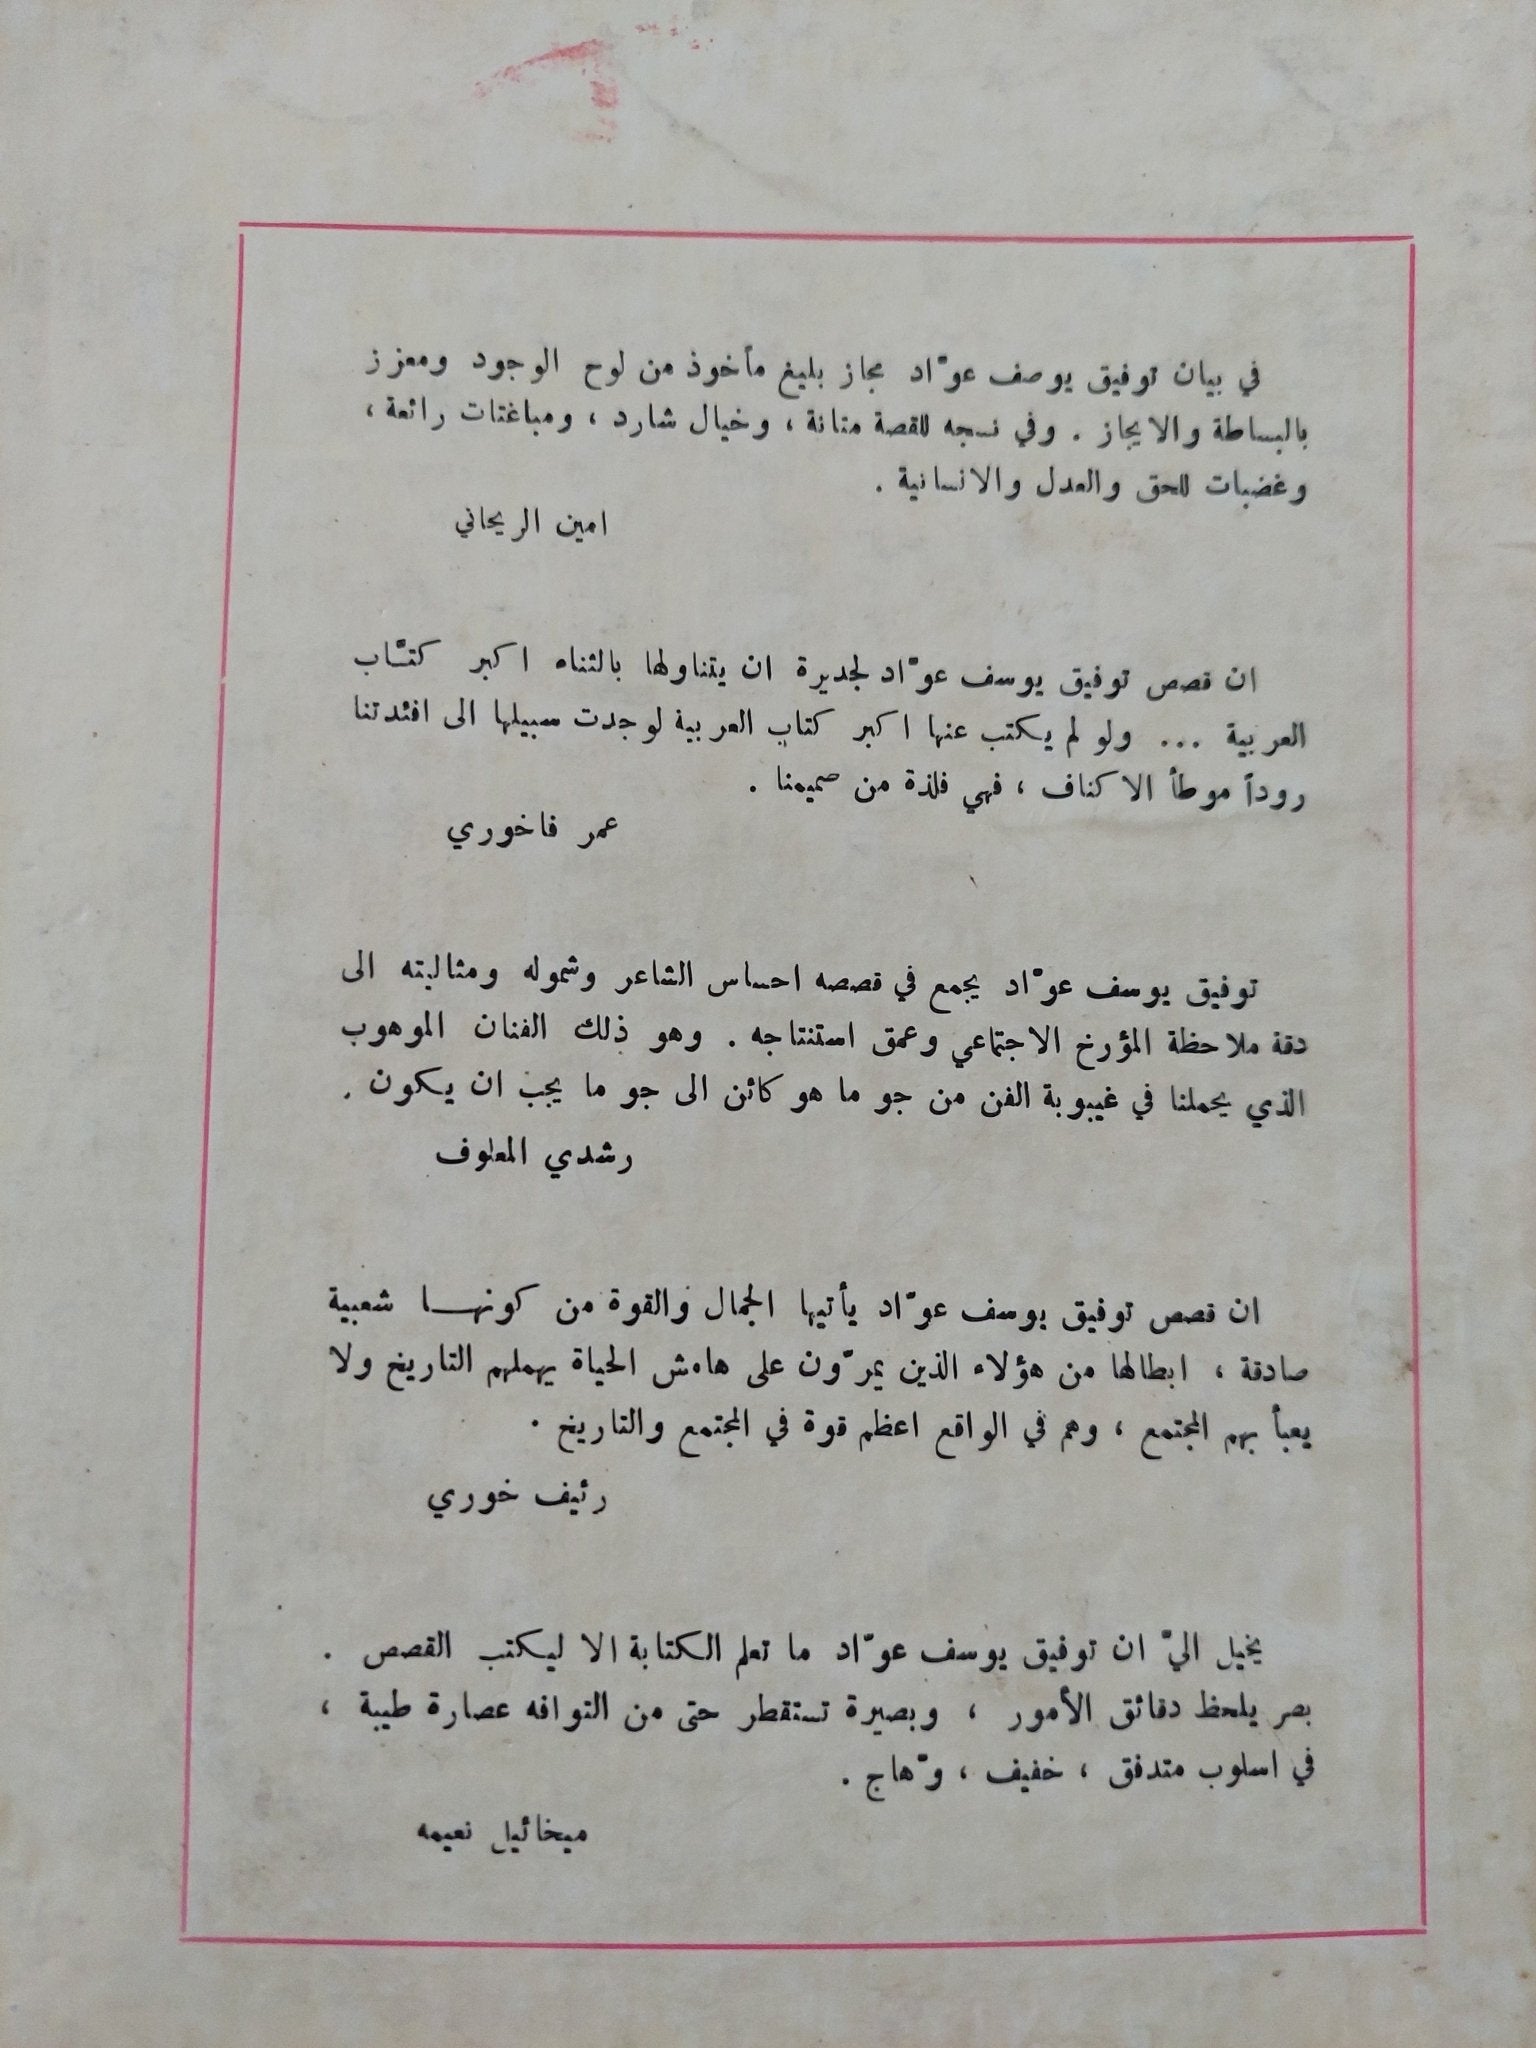 في بيان توفيق يوسف عوّاد مجاز بليغ مأخوذ من لوح الوجود ومعزز
بالبساطة والايجاز . وفي نسجه للقصة متانة ، وخيال شارد ، ومباغتات رائعة ،
وغضبات للحق والعدل والانسانية .
امين الريحاني
ان قصص توفيق يوسف عوّاد لجديرة ان يتناولها بالثناء اكبر كتّاب
العربية ... ولو لم يكتب عنها اكبر كتاب العربية لوجدت سبيلها الى افئدتنا
روداً موطأ الاكناف ، فهي فلذة من صميمنا .
عمر فاخوري
توفيق يوسف عوّاد يجمع في قصصه احساس الشاعر وشموله ومثاليته الى
دقة ملاحظة المؤرخ الاجتماعي وعمق استنتاجه . وهو ذلك الفنان الموهوب
الذي يحملنا في غيبوبة الفن من جو ما هو كائن الى جو ما يجب ان يكون .
رشدي المعلوف
ان قصص توفيق يوسف عوّاد يأتيها الجمال والقوة من كونهـا شعبية
صادقة ، ابطالها من هؤلاء الذين يمرّون على هامش الحياة يهملهم التاريخ ولا
يعبأ بهم المجتمع ، وهم في الواقع اعظم قوة في المجتمع والتاريخ .
رئيف خوري
يخيل اليّ ان توفيق يوسف عوّاد ما تعلم الكتابة الا ليكتب القصص .
بصر يلحظ دقائق الأمور ، وبصيرة تستقطر حتى من التوافه عصارة طيبة ،
في اسلوب متدفق ، خفيف ، وّهاج .
ميخائيل نعيمه